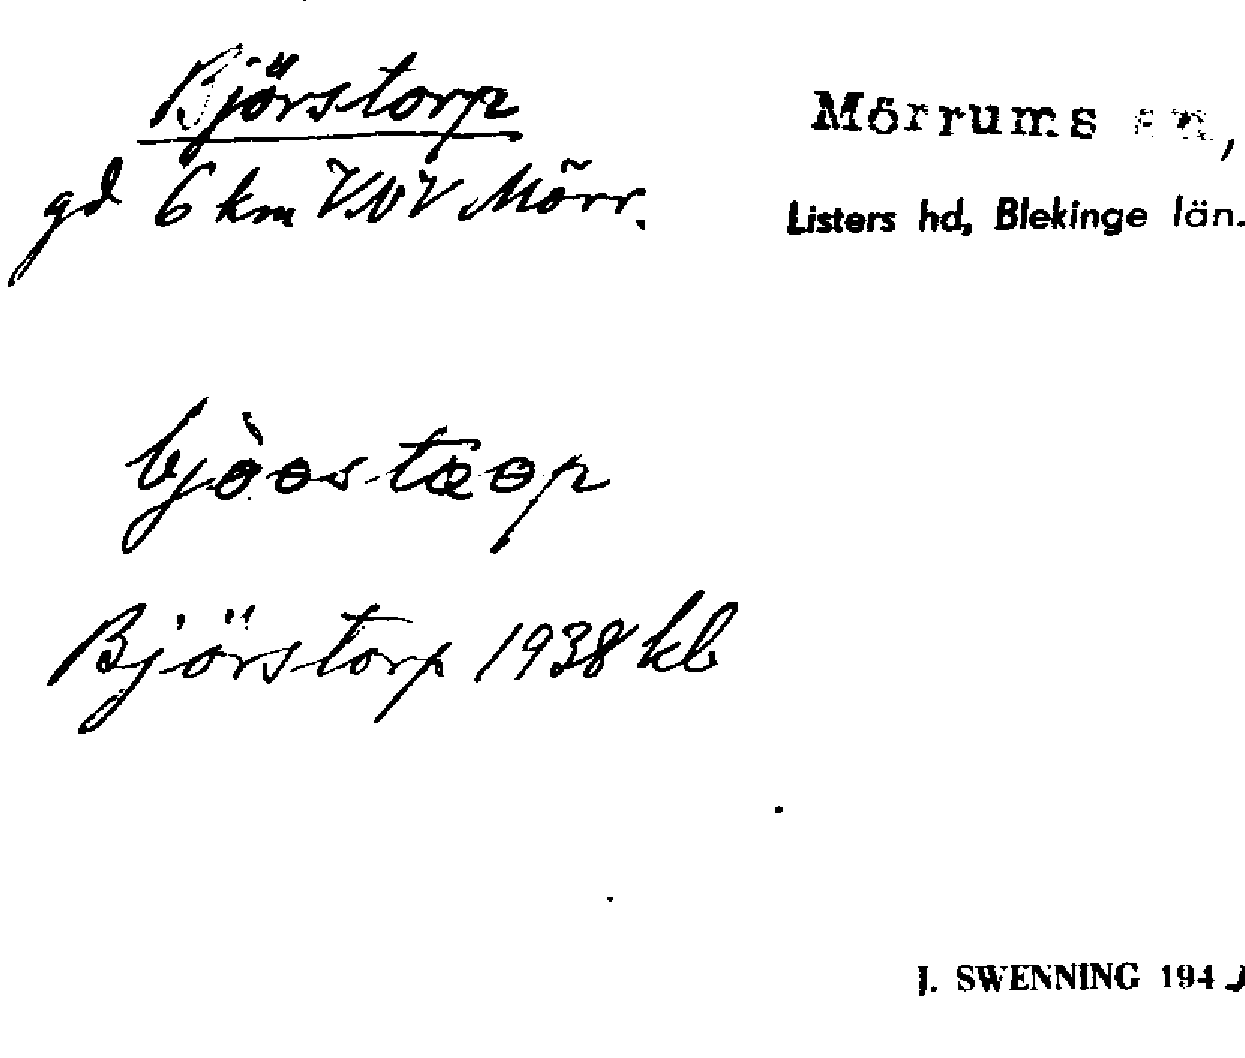 Björstorp
gd 6 km VNV Mörr.
Mörrums sn,
Listers hd, Blekinge län.
Björstorp 1938 kb
J. SWENNING 194